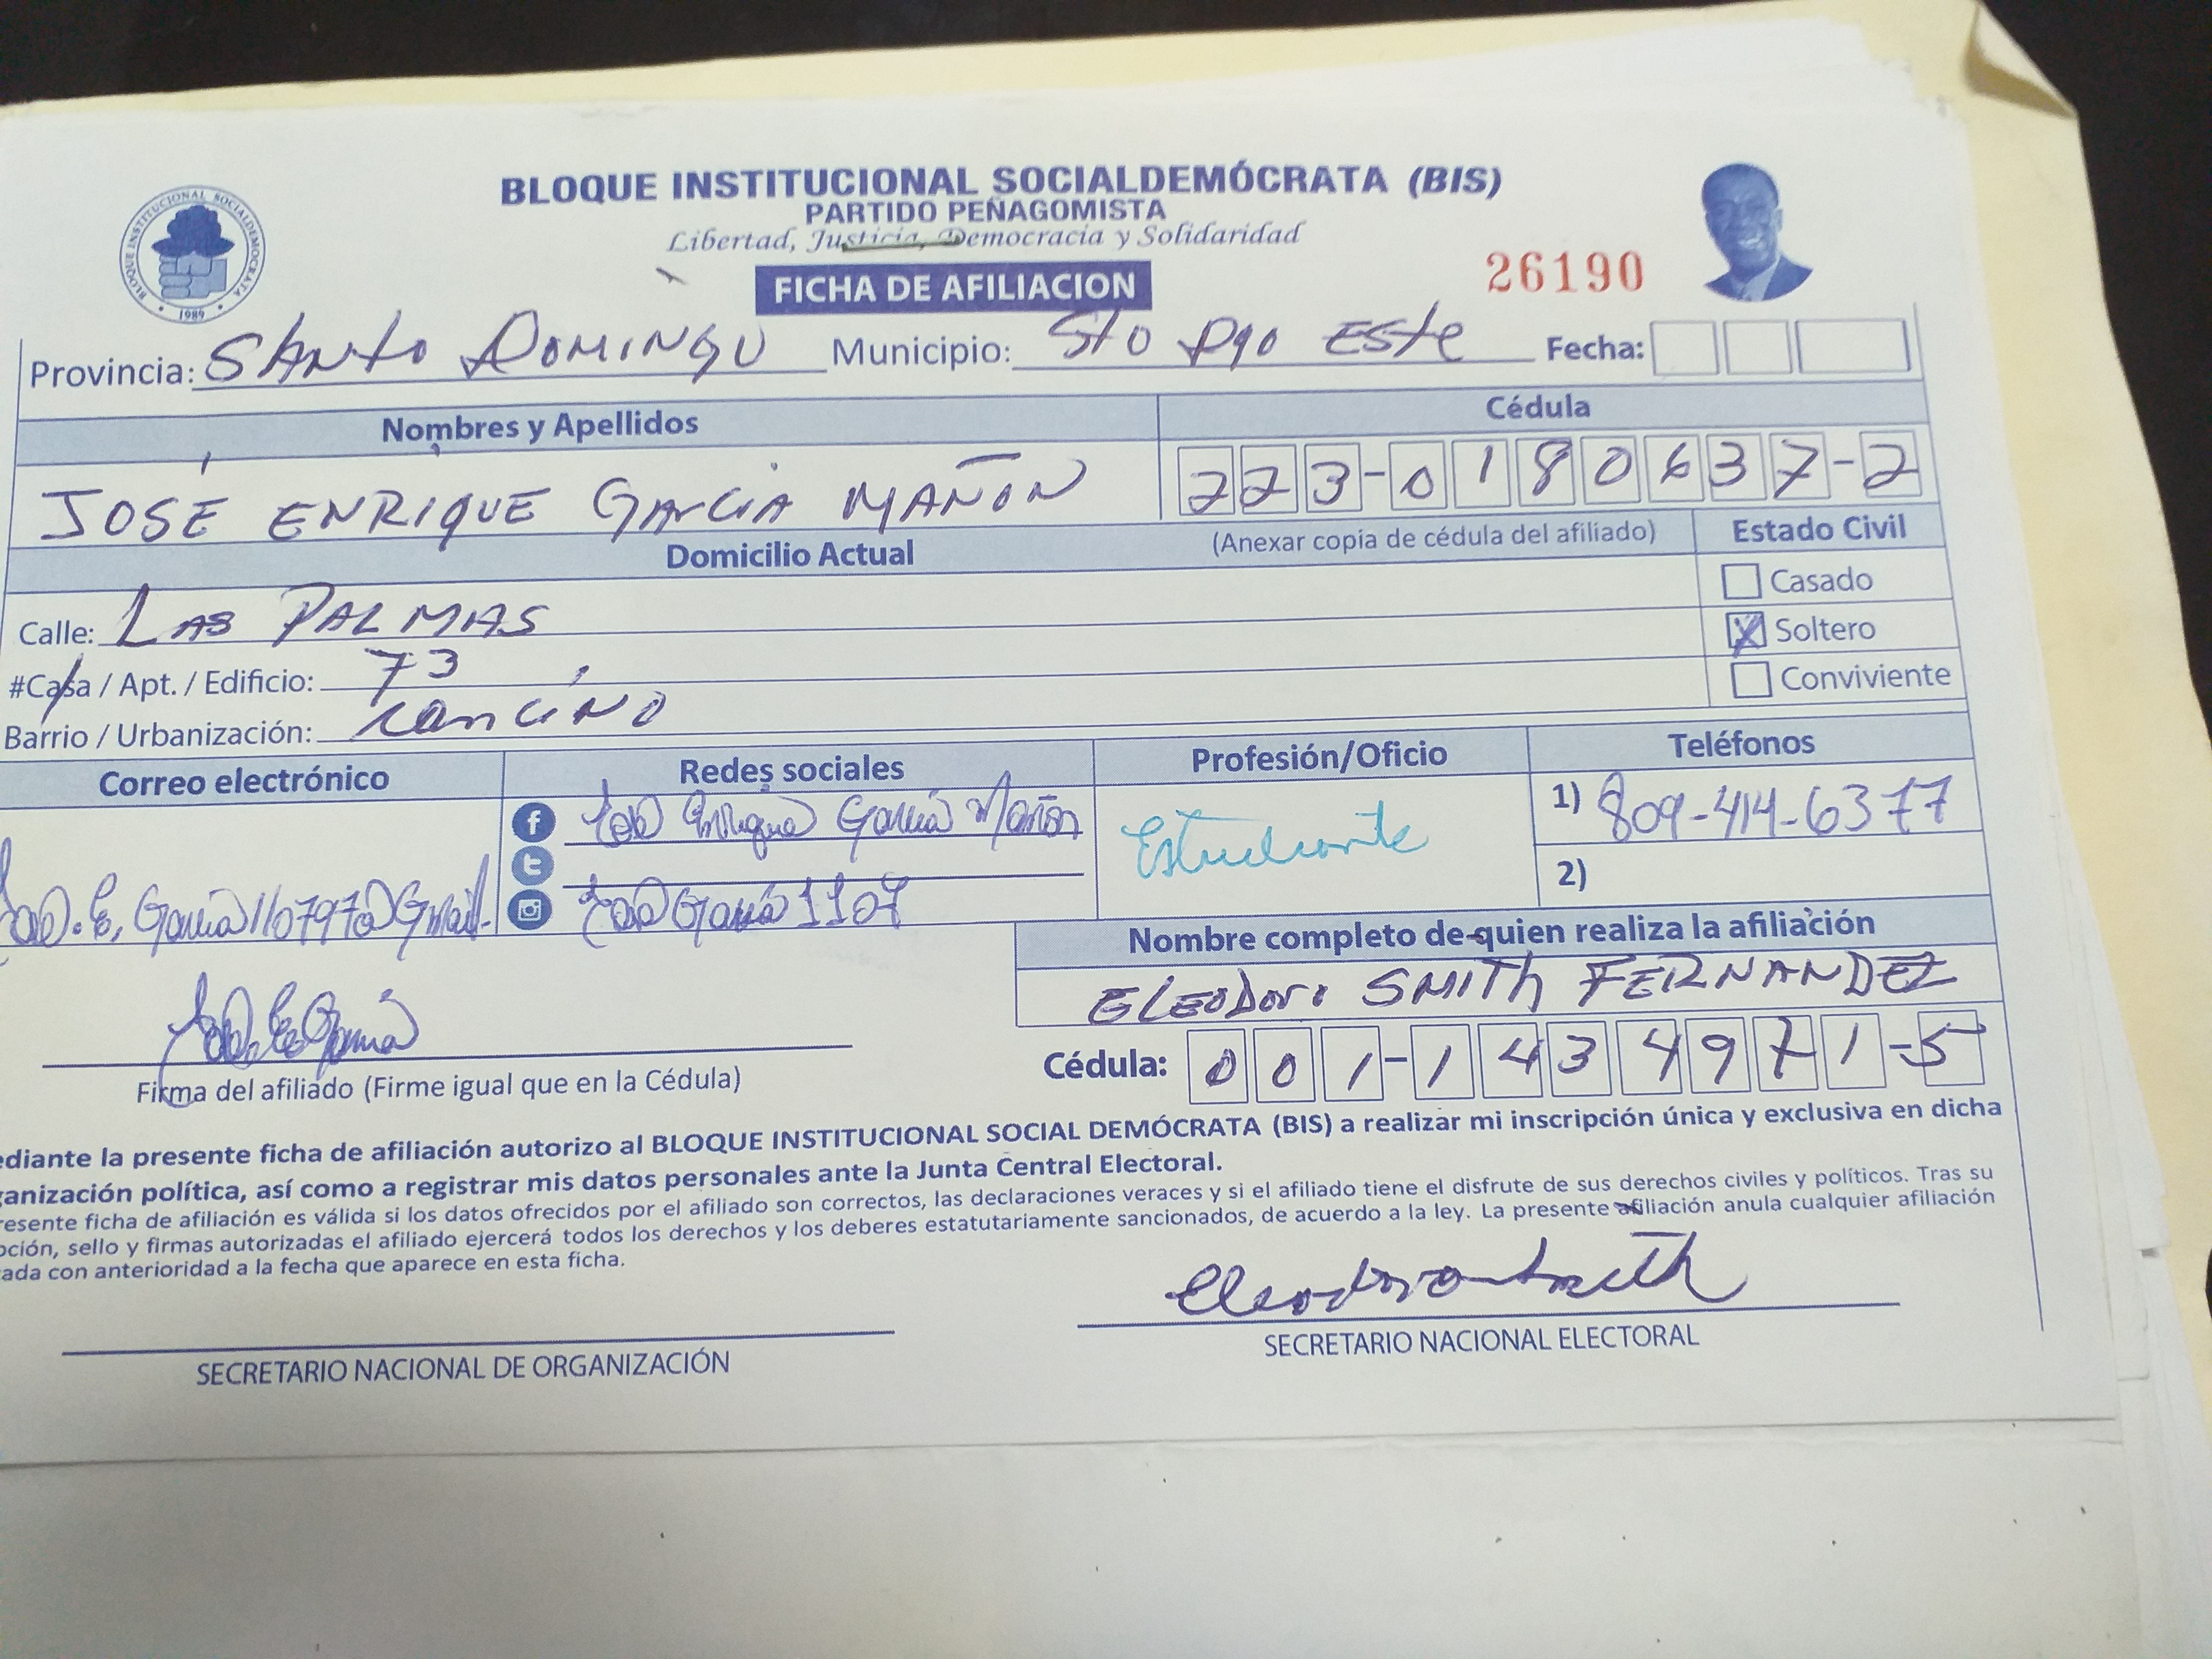 BLOQUE INSTITUCIONAL SOCIALDEMÓCRATA (BIS)
PARTIDO PEÑAGOMISTA
Libertad, Justicia, Democracia y Solidaridad
BLOQUE INSTITUCIONAL SOCIALDEMOCRATA
1989
FICHA DE AFILIACION
26190
Provincia: SANTO DOMINGO Municipio: Sto Dgo ESTe Fecha:
Nombres y Apellidos Cédula
JOSÉ ENRIQUE GARCIA MAÑON 223-0180637-2
Domicilio Actual (Anexar copia de cédula del afiliado) Estado Civil
Casado
Calle: LAS PALMAS
Soltero
#Casa / Apt. / Edificio: 73
Conviviente
Barrio / Urbanización: cancino
Correo electrónico Redes sociales Profesión/Oficio Teléfonos
José Enrique García Mañón
Estudiante
1) 809-414-6377
2)
José García 1107
Nombre completo de quien realiza la afiliación
ELEODORO SMITH FERNANDEZ
Cédula: 001-1434971-5
Firma del afiliado (Firme igual que en la Cédula)
ediante la presente ficha de afiliación autorizo al BLOQUE INSTITUCIONAL SOCIAL DEMÓCRATA (BIS) a realizar mi inscripción única y exclusiva en dicha
ganización política, así como a registrar mis datos personales ante la Junta Central Electoral.
resente ficha de afiliación es válida si los datos ofrecidos por el afiliado son correctos, las declaraciones veraces y si el afiliado tiene el disfrute de sus derechos civiles y políticos. Tras su
pción, sello y firmas autorizadas el afiliado ejercerá todos los derechos y los deberes estatutariamente sancionados, de acuerdo a la ley. La presente afiliación anula cualquier afiliación
ada con anterioridad a la fecha que aparece en esta ficha.
Eleodoro Smith
SECRETARIO NACIONAL DE ORGANIZACIÓN
SECRETARIO NACIONAL ELECTORAL